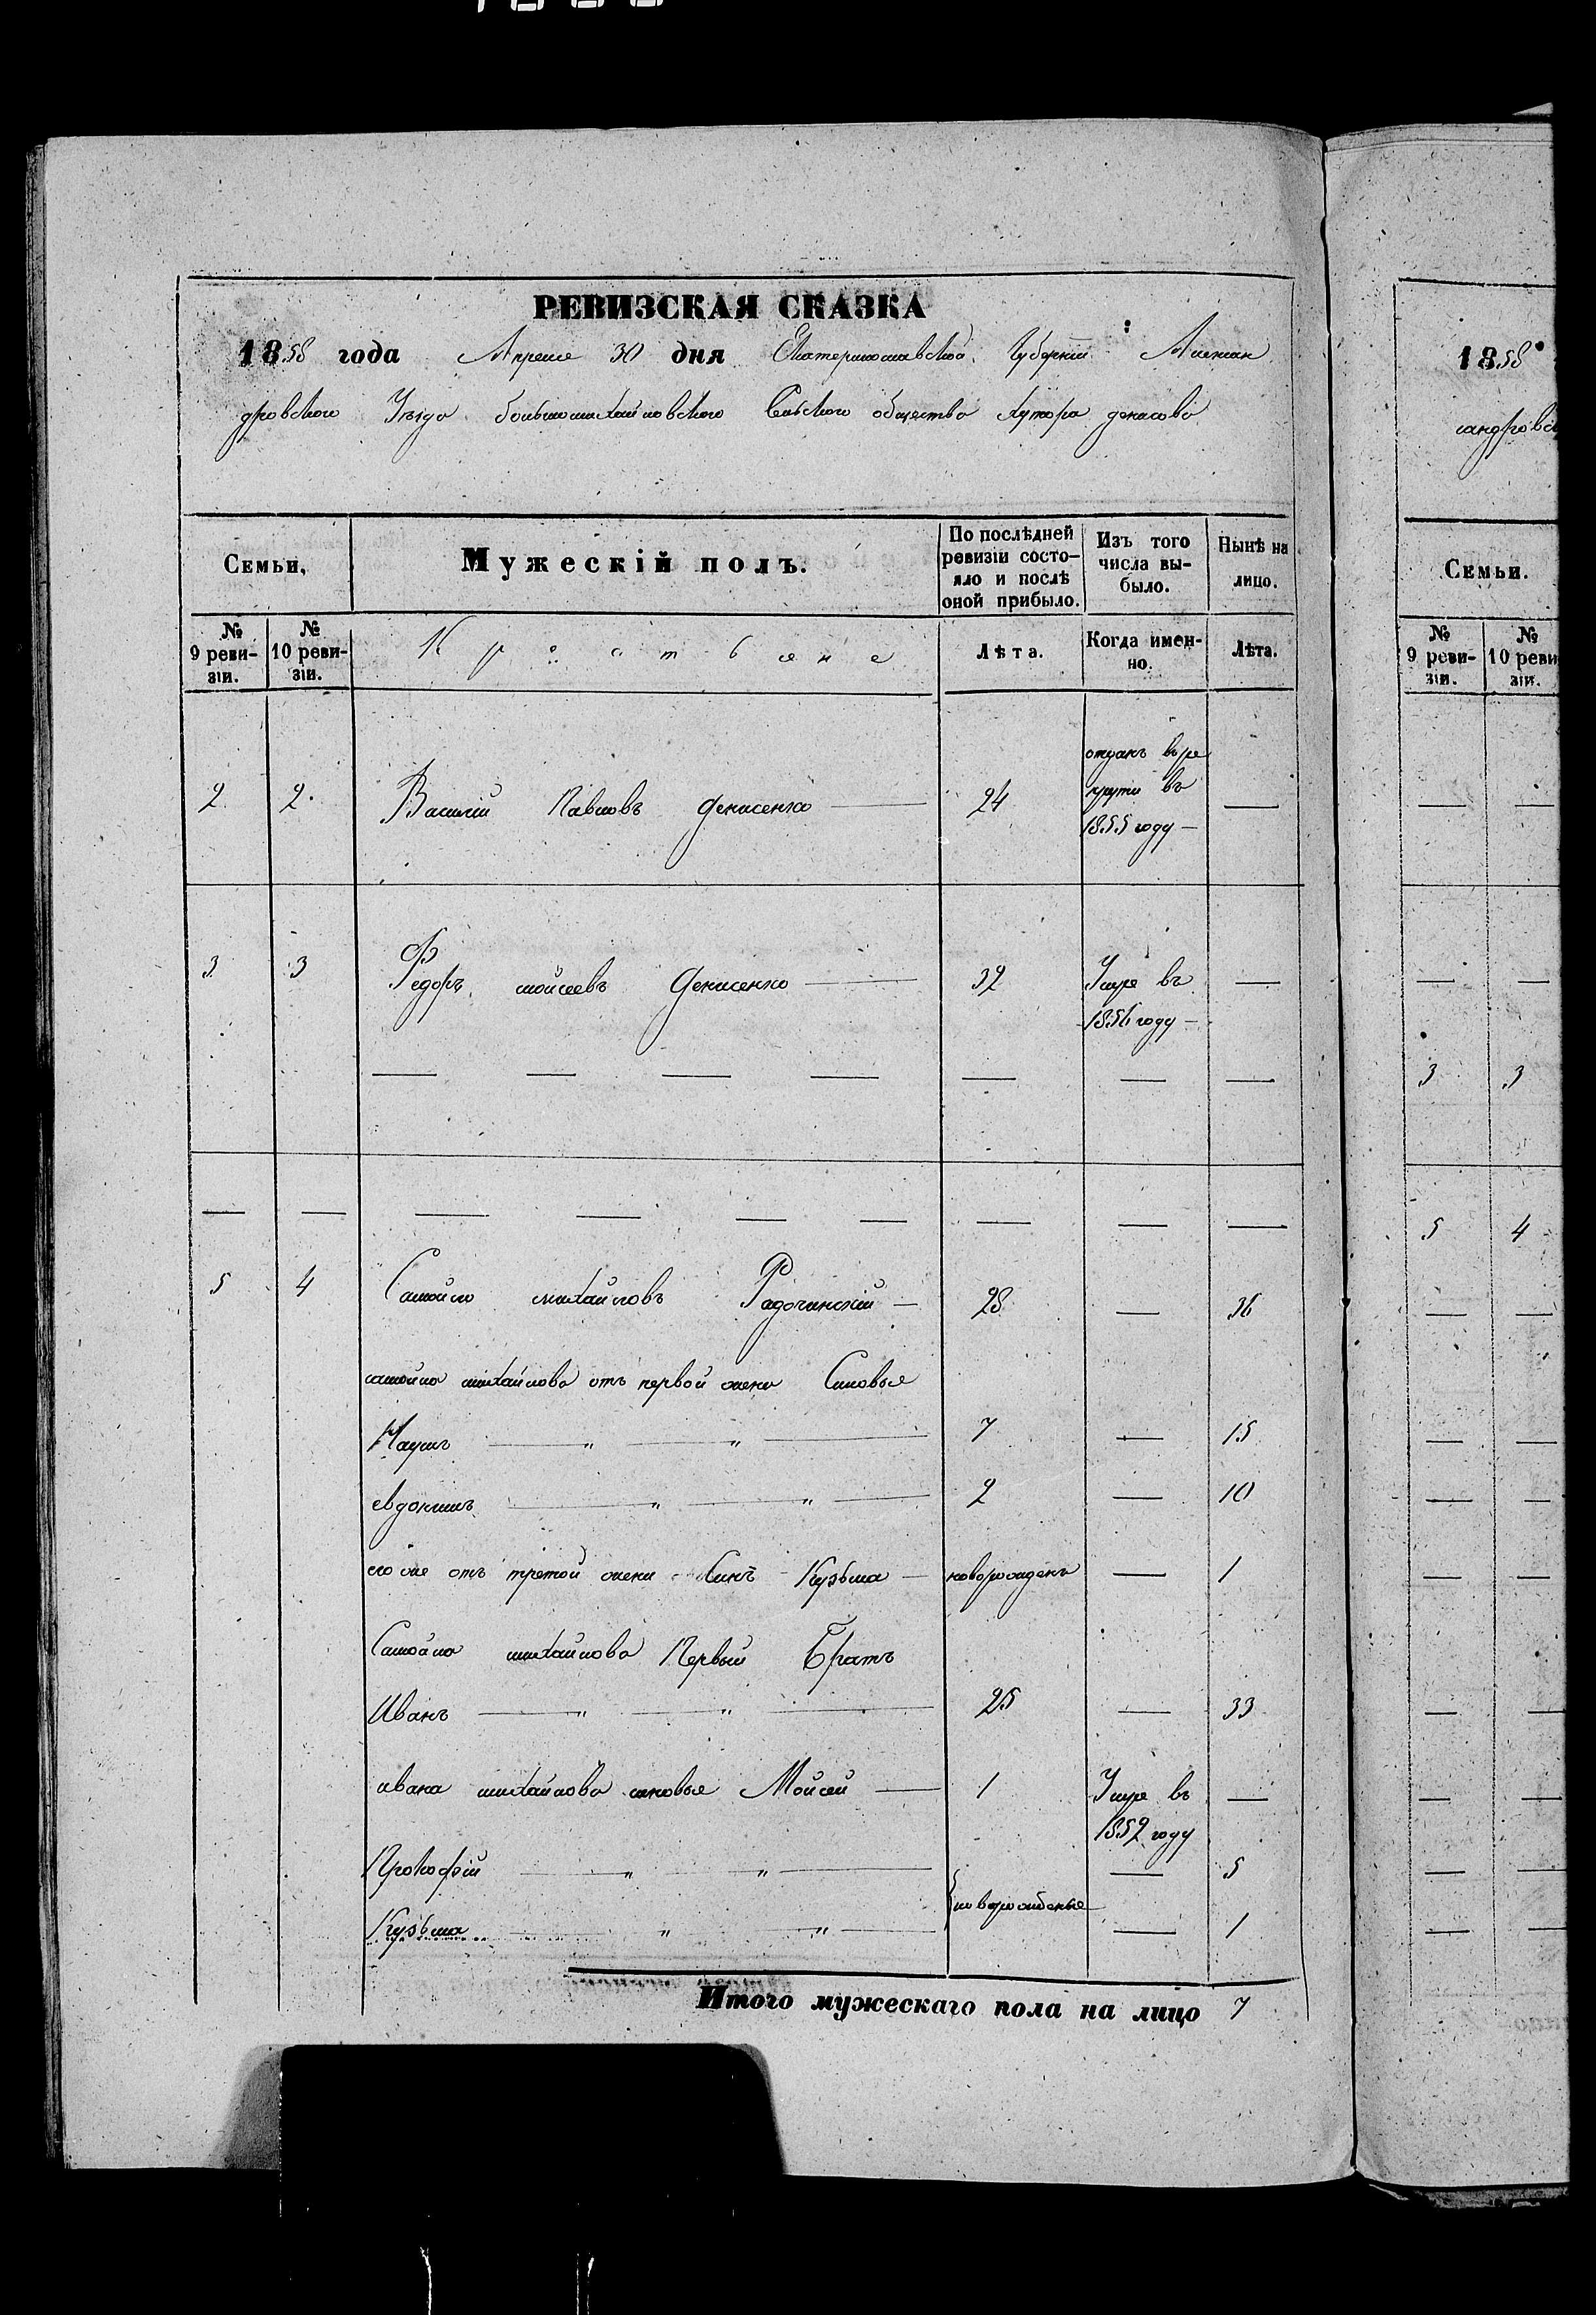 РЕВИЗСКАЯ СКАЗКА
1858 года Апреле 30 дня Екатеринославской Губернiи Алексан
дровского Уезда большомихайловского Сельского общества Хутора
Семьи.
Мужескiй полъ.
По послѣдней ревизiи состо-
яло и послѣ
оной прибыло.
Изъ того
числа вы-
было.
Нынѣ на
лицо.
№
9 реви-
зiи.
№
10 реви-
зiи.
Лѣта.
Когда имен-
но.
Лѣта.
2 2. Василiй Павловъ Денисенко — 24 отданъ въ ре
крути въ
1855 году — —
3 3 Федоръ мойсеевъ Денисенко — 32 Умре въ
1856 году — —
— — — — — — —
— — — — — — — — —
5 4 Самойло михайловъ Радочинскiй — 28 — 36
самойла михайлова отъ первой жени Синовье
Наумъ — „ — „ — 7 — 15
евдокимъ — „ — „ — 2 — 10
его же отъ третой жени Синъ Кузьма — новорожденъ — 1
Самойла михайлова Первый Братъ
Иванъ — „ — „ — 25 — 33
ивана михайлова синовье Мойсей — 1 Умре въ
1852 году —
Прокофiй — „ — „ — — 5
новорожденые
Кузьма — „ — „ — — 1
Итого мужескаго пола на лицо 7
1858
сандровск
Семьи.
№
9 реви-
зiи.
№
10 реви
зiи.
— —
— —
3 3
5 4
— —
— —
— —
— —
— —
— —
— —
— —